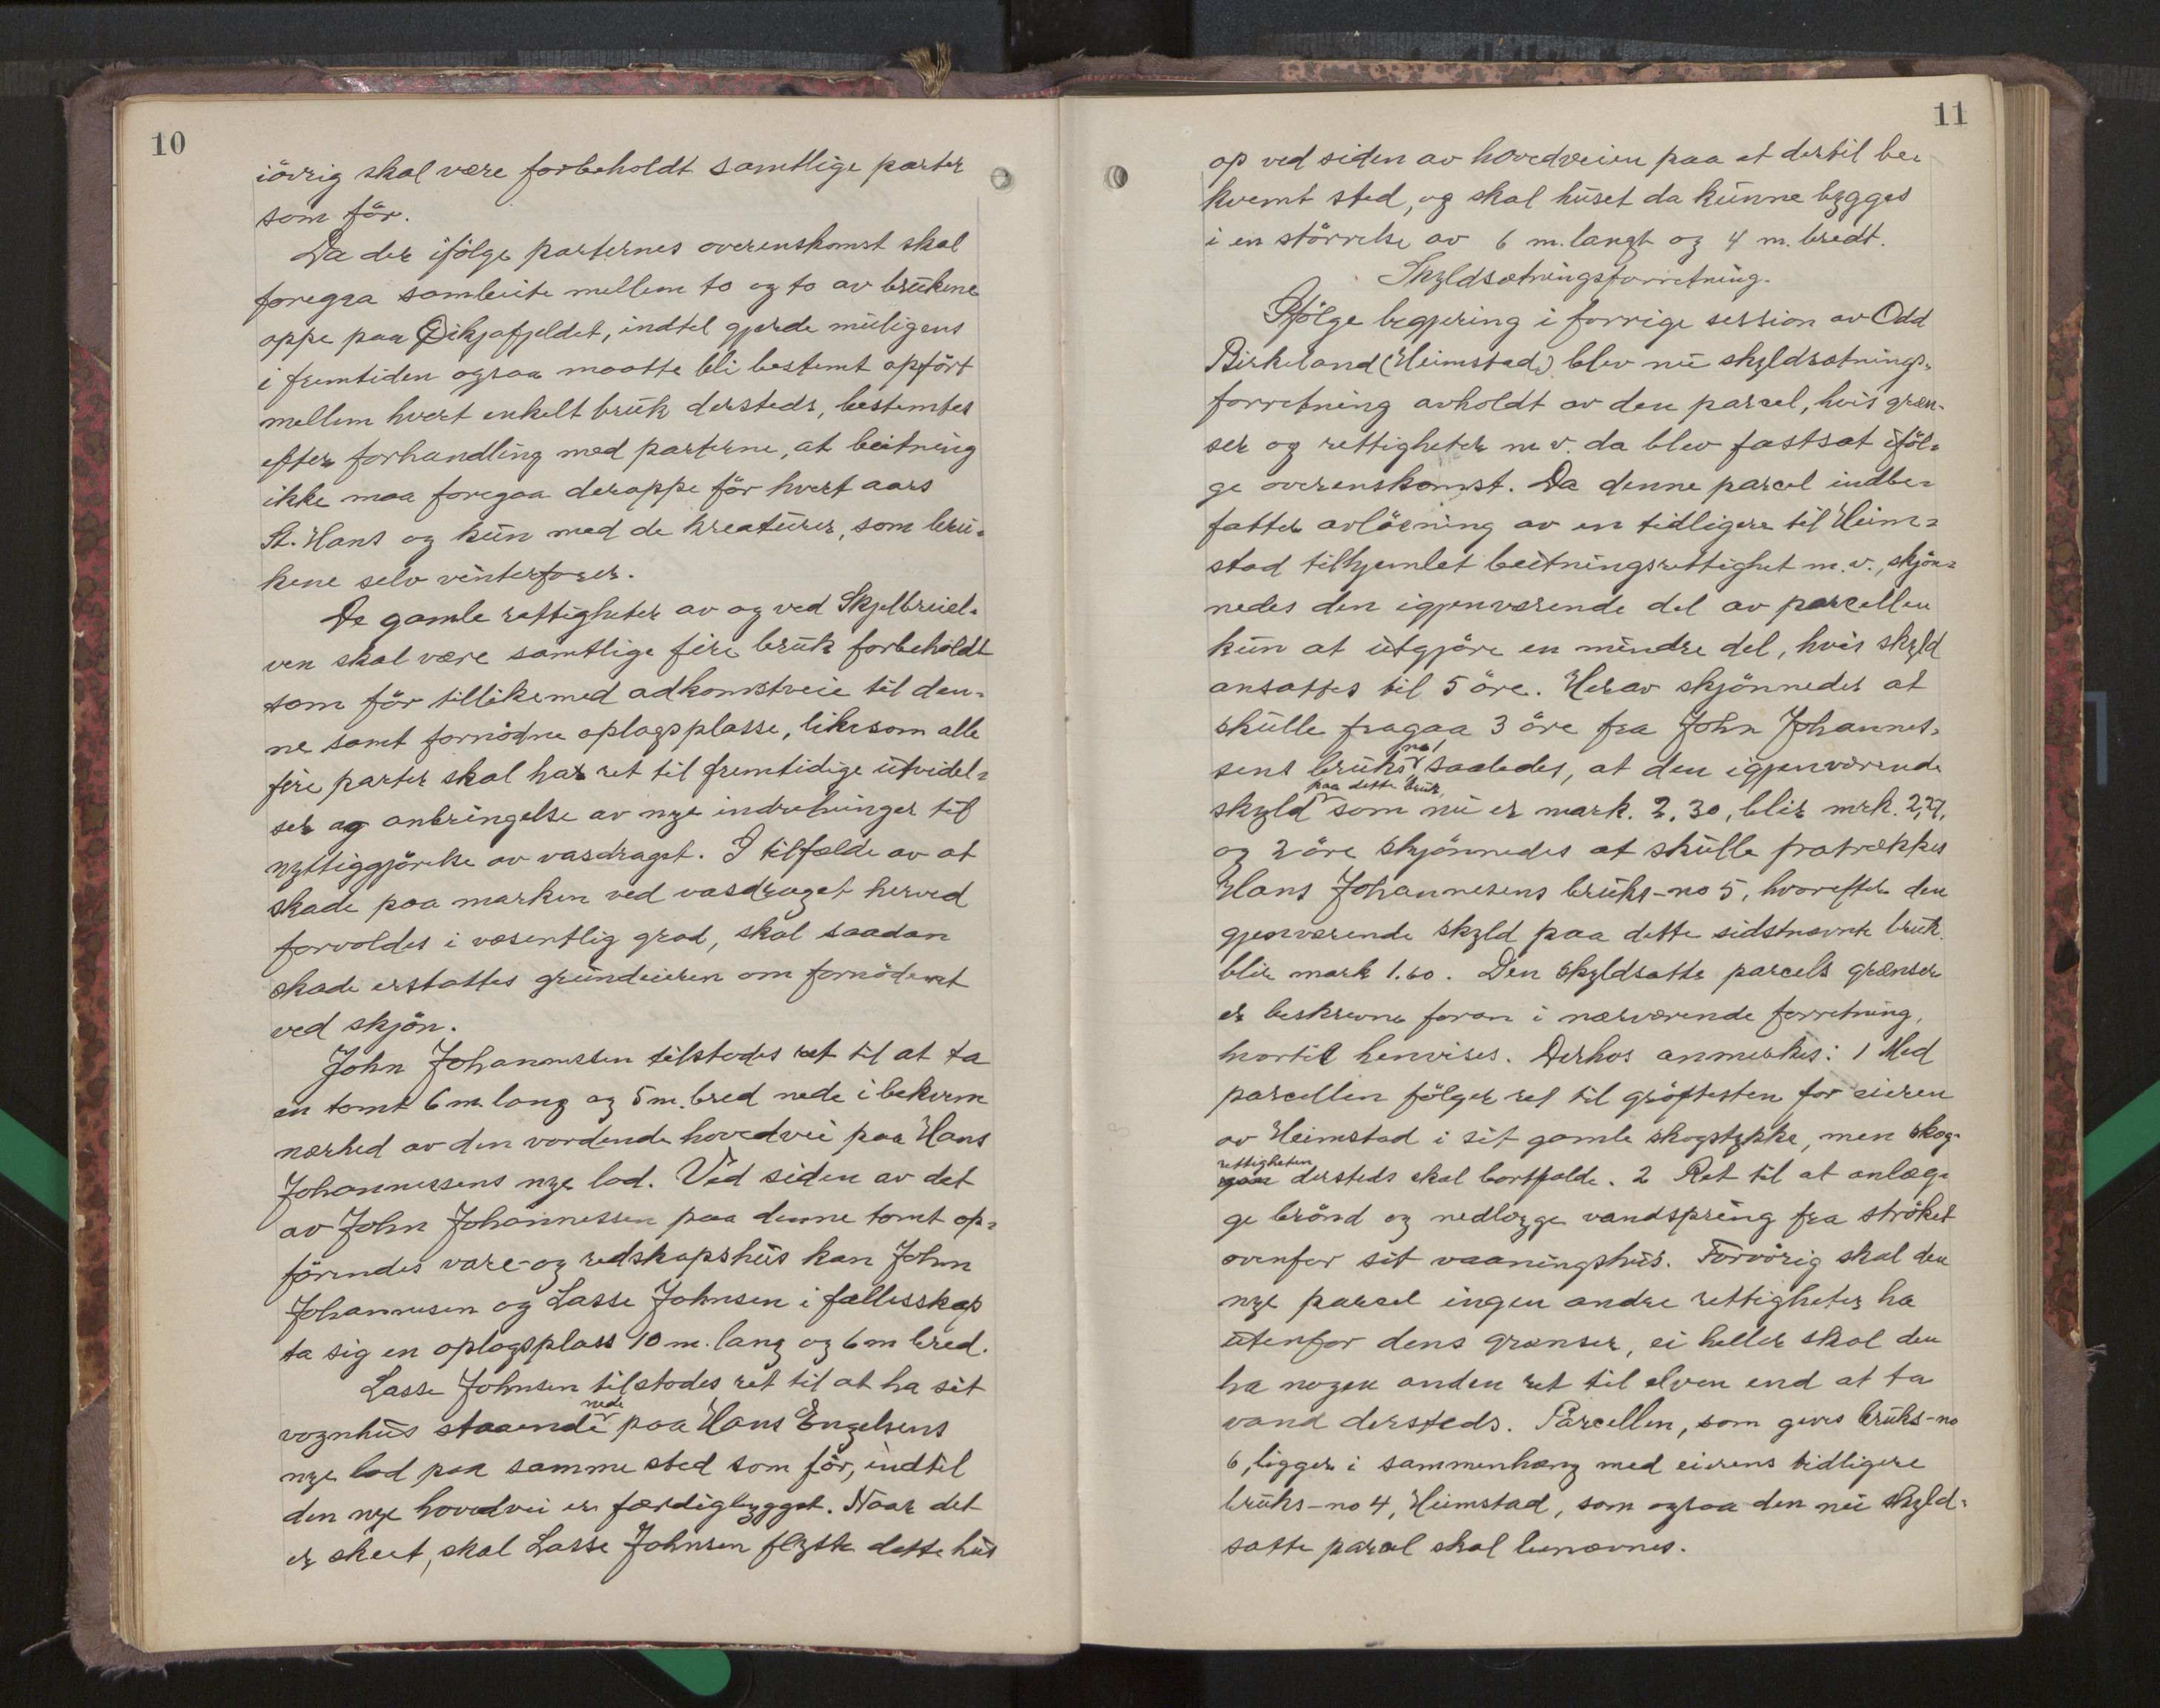 10
iövrig skal være forbeholdt samtlige parter
som för.
Da der ifölge parternes overenskomst skal
foregaa sambeite mellem to og to av brukene
oppe paa Dikjafjeldet, indtil gjerde muligens
i fremtiden ogsaa maatte bli bestemt opfört
mellem hvert enkelt bruk dersteds, bestemtes
efter forhandling med parterne, at beitning
ikke maa foregaa deroppe för hvert aars
St. Hans og kun med de kreaturer, som bru-
kene selv vinterforer.
De gamle rettigheter av og ved Skjelbreiel-
ven skal være samtlige fire bruk forbeholdt
som för tillikemed adkomstveie til den-
ne samt fornödne oplagsplasse, likesom alle
fire parter skal ha ret til fremtidige utvidel-
ser og anbringelse av nye indretninger til
nyttiggjörelse av vasdraget. I tilfælde av at
skade paa marken ved vasdraget herved
forvoldes i væsentlig grad, skal saadan
skade erstattes grundeieren om fornödent
ved skjön.
John Johannessen tilstodes ret til at ta
en tomt 6 m. lang og 5 m. bred nede i bekvem
nærhed av den vordende hovedvei paa Hans
Johannessens nye lod. Ved siden av det
av John Johannessen paa denne tomt op-
förendes vare- og redskapshus kan John
Johannesen og Lasse Johnsen i fællesskap
ta sig en oplagsplass 10 m. lang og 6 m bred.
Lasse Johnsen tilstodes ret til at ha sit
vognhus staaende nede paa Hans Engelsens
nye lod paa samme sted som för, indtil
den nye hovedvei er færdigbygget. Naar det
er skeet, skal Lasse Johnsen flytte dette hus
11
op ved siden av hovedveien paa et dertil be-
kvemt sted, og skal huset da kunne bygges
i en störrelse av 6 m. langt og 4 m. bredt.
Skyldsætningsforretning.
Ifölge begjæring i forrige session av Odd
Birkeland (Heimstad) blev nu skyldsætnings-
forretning avholdt av den parcel, hvis græn-
ser og rettigheter m v. da blev fastsat iföl-
ge overenskomst. Da denne parcel indbe-
fatter avlösning av en tidligere til Heim-
stad tilhjemlet beitningsrettighet m. v., skjön-
nedes den igjenværende del av parcellen
kun at utgjöre en mindre del, hvis skyld
ansattes til 5 öre. Herav skjönnedes at
skulle fragaa 3 öre fra John Johannes-
sens bruks no 1 saaledes, at den igjenværende
skyld paa dette bruk, som nu er mark. 2,30, blir mrk. 2,27,
og 2 öre skjönnedes at skulle fratrækkes
Hans Johannesens bruks-no 5, hvorefter den
gjenværende skyld paa dette sidstnævnte bruk
blir mark 1.60. Den skyldsatte parcels grænser
er beskrevne foran i nærværende forretning,
hvortil henvises. Derhos anmerkes: 1 Med
parcellen fölger ret til gröftesten for eieren
av Heimstad i sit gamle skogstykke, men skog-
rettigheten dersteds skal bortfalde. 2 Ret til at anlæg-
ge brönd og nedlægge vandspring fra ströket
ovenfor sit vaaningshus. Forövrig skal den
nye parcel ingen andre rettigheter ha
utenfor dens grænser, ei heller skal den
ha nogen anden ret til elven end at ta
vand dersteds. Parcellen, som gives bruks-no
6, ligger i sammenhæng med eierens tidligere
bruks-no 4, Heimstad, som ogsaa den nu skyld-
satte parcel skal benævnes.